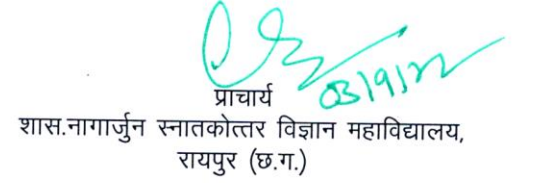 03/9/22
प्राचार्य
शास.नागार्जुन स्नातकोत्तर विज्ञान महाविद्यालय,
रायपुर (छ.ग.)